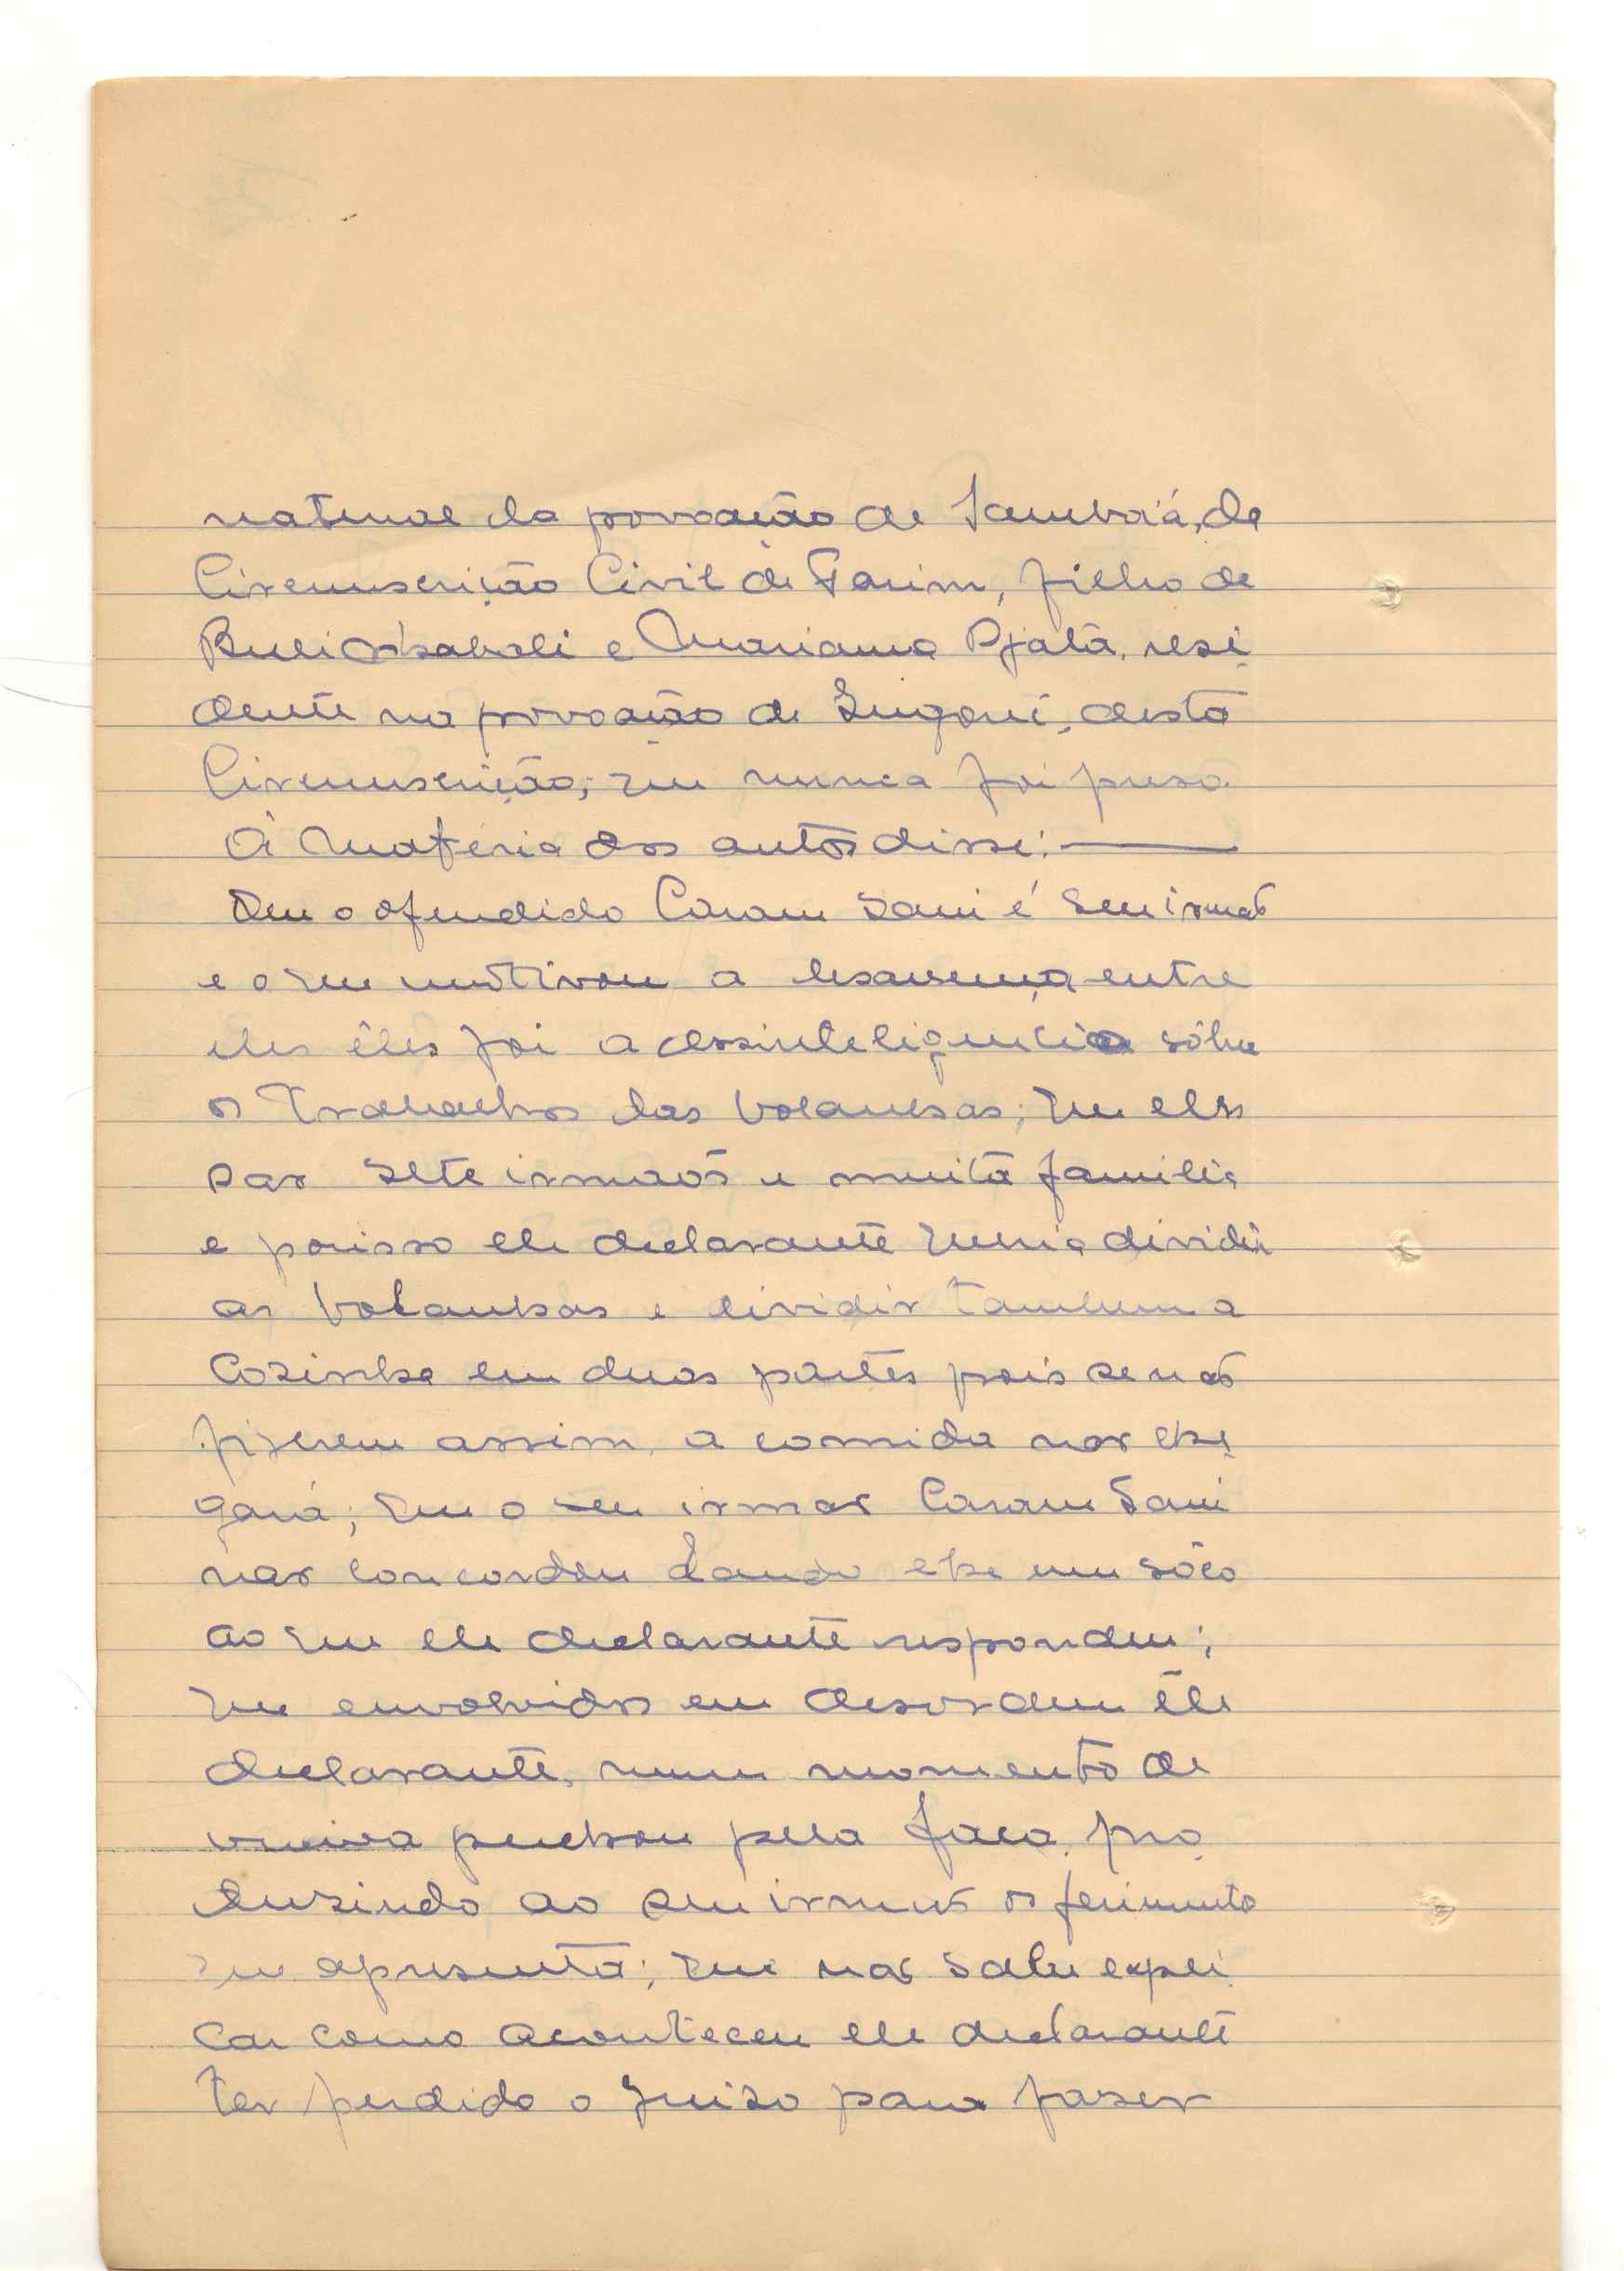 natural da povoação de Sambaiá, da
Circunscrição Civil de Farim, filho de
e Mariama Djatá, resi
dente na povoação de desta
Circunscrição; que nunca foi preso.
À Matéria dos autos disse: ———
Que o ofendido Caram Sani é seu irmão
e o que motivou a desavença entre
eles êles foi a desinteligencia sôbre
os Trabalhos das bolanhas; que eles
são sete irmãos e muita familia
e porisso ele declarante queria dividir
as bolanhas e dividir tambem a
Cozinha em duas partes pois se não
fizerem assim, a comida não che
gará; que o seu irmão Caram Sani
não concordou dando-lhe um sôco
ao que ele declarante respondeu;
que envolvidos em desordem êle
declarante, num momento de
puchou pela faca, pro
duzindo ao seu irmão os ferimento
que apresenta; que não sabe expli
car como aconteceu ele declarante
ter perdido o Juizo para fazer